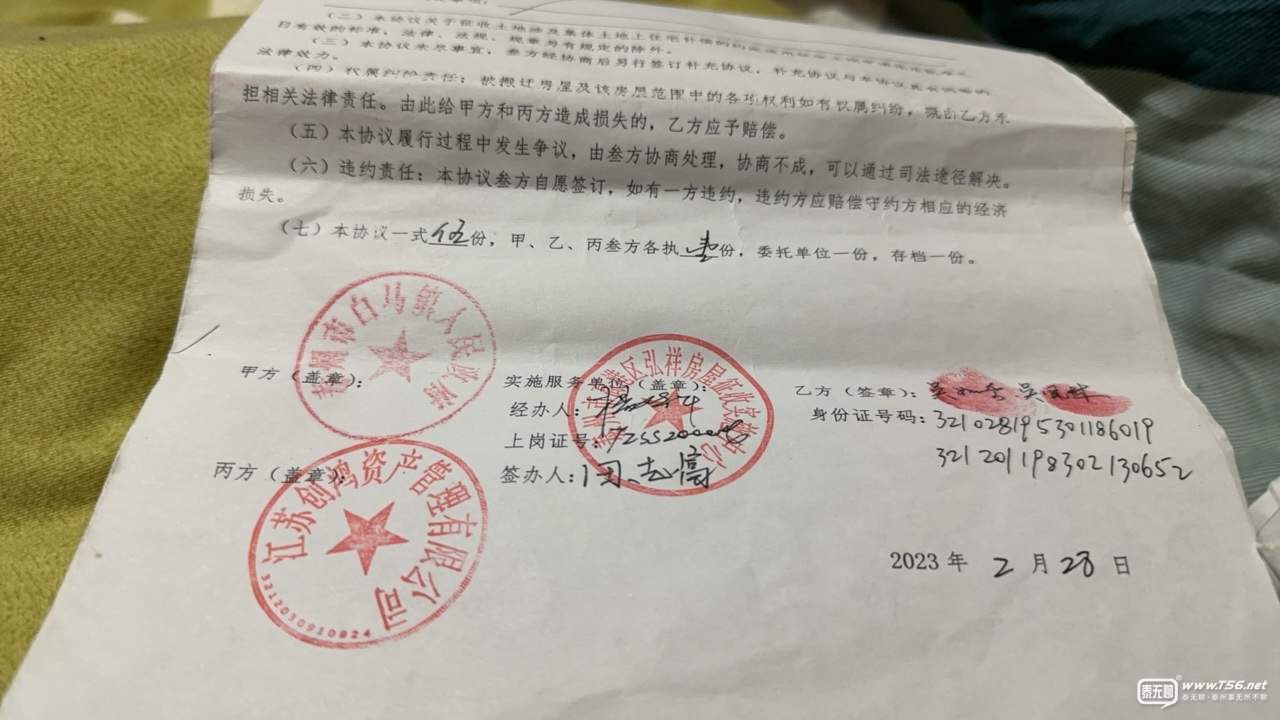 （二）本协议关于征收土地涉及集体土地上住宅补偿的
行有效的标准，法律、法规、规章另有规定的除外。
（三）本协议未尽事宜，叁方经协商后另行签订补充协议，补充协议与本协议具有同等的
法律效力。
（四）权属纠纷责任：被搬迁房屋及该房屋范围中的各项权利如有权属纠纷，概由乙方承
担相关法律责任。由此给甲方和丙方造成损失的，乙方应予赔偿。
（五）本协议履行过程中发生争议，由叁方协商处理，协商不成，可以通过司法途径解决。
（六）违约责任：本协议叁方自愿签订，如有一方违约，违约方应赔偿守约方相应的经济
损失。
（七）本协议一式伍份，甲、乙、丙叁方各执壹份，委托单位一份，存档一份。
市白马镇人民政府
甲方（盖章）：
实施服务单位（盖章）：
区弘祥房屋征收实
乙方（签章）：
经办人：
身份证号码：321028195301186019
上岗证号：
321201198302130652
丙方（盖章）：
签办人：
江苏创鸿资产管理有限公司
3212030910924
2023 年 2 月 28 日
泰无聊
www.T56.net
泰无聊·泰州泰无所不聊